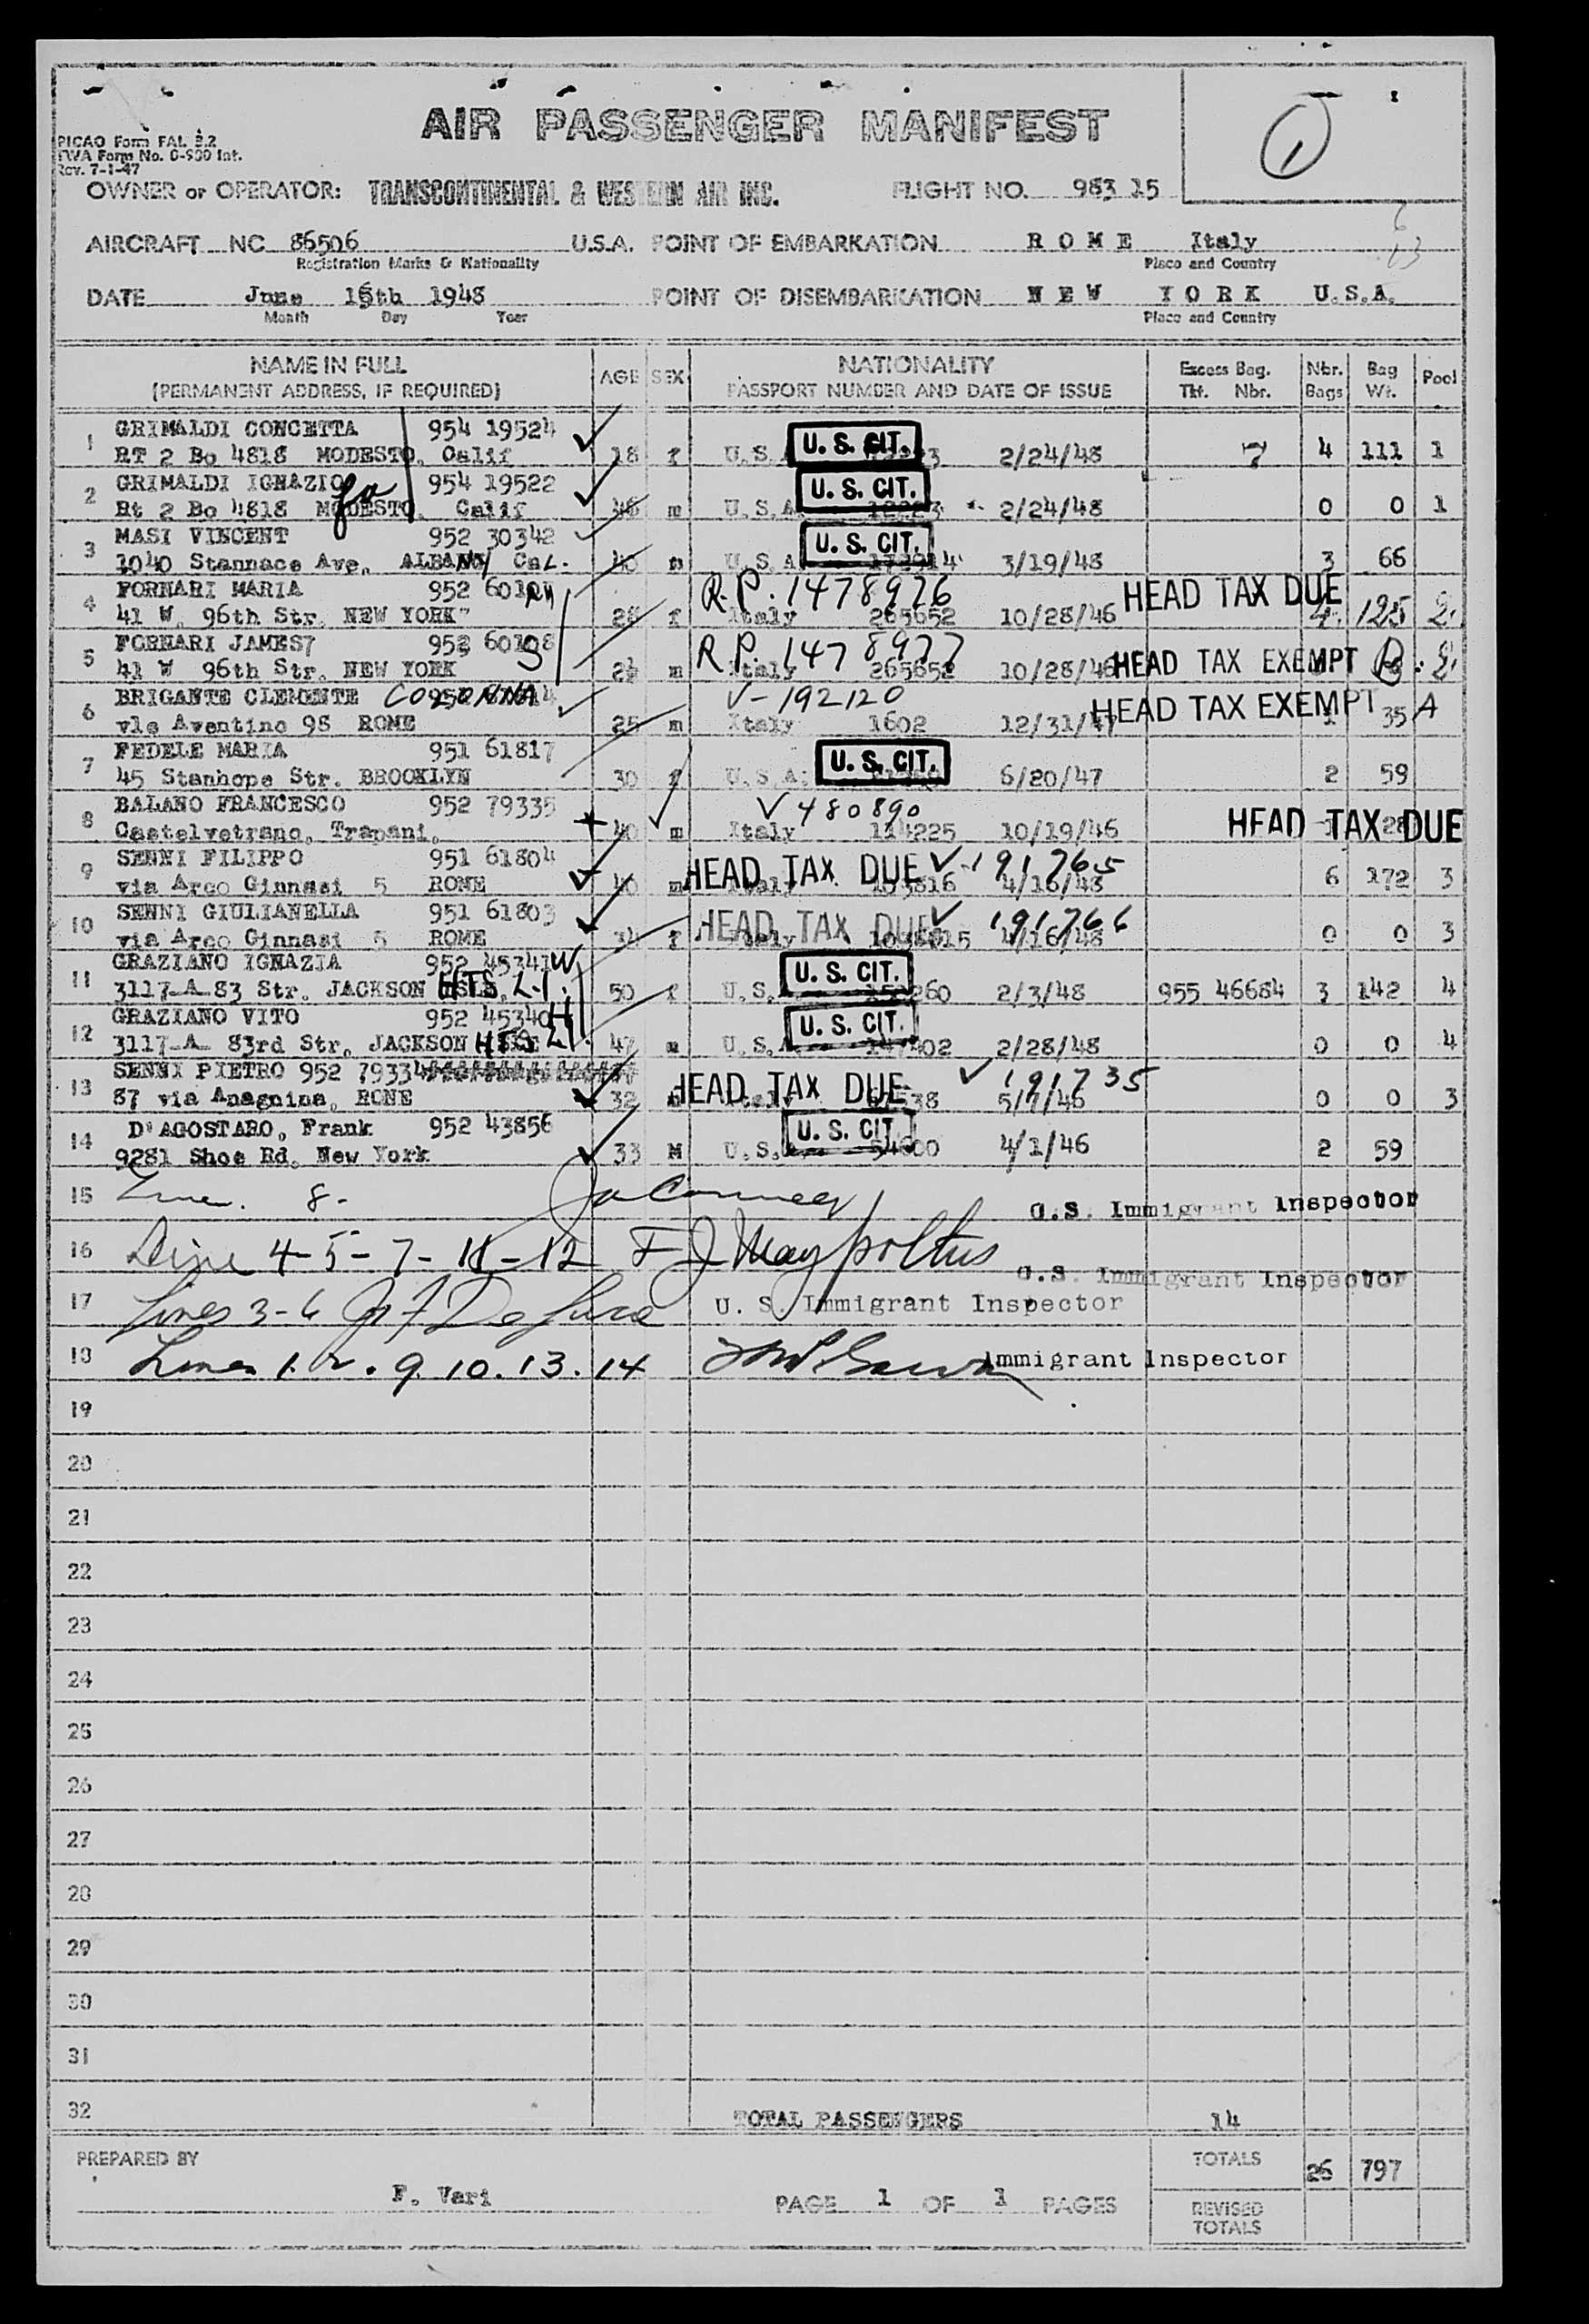 AIR PASSENGER MANIFEST
1
PICAO Form FAL 3.2
TWA Form No. 0-900 Int.
Rev. 7-1-47
OWNER or OPERATOR: TRANSCONTINENTAL & WESTERN AIR INC. FLIGHT NO. 983 15
AIRCRAFT NC 86506 U.S.A. POINT OF EMBARKATION R O M E Italy
Registration Marks & Nationality Place and Country
DATE June 15th 1948 POINT OF DISEMBARKATION N E W Y O R K U.S.A.
Month Day Year Place and Country
NAME IN FULL AGE SEX NATIONALITY Excess Bag. Nbr. Bag Pool
(PERMANENT ADDRESS, IF REQUIRED) PASSPORT NUMBER AND DATE OF ISSUE Tkt. Nbr. Bags Wt.
1 GRIMALDI CONCETTA 954 19524 U. S. CIT.
RT 2 Bo 4818 MODESTO, Calif 18 f U.S.A 2/24/48 7 4 111 1
2 GRIMALDI IGNAZIO 954 19522 U. S. CIT.
Rt 2 Bo 4818 MODESTO, Calif 46 m U.S.A. 2/24/48 0 0 1
3 MASI VINCENT 952 30342 U. S. CIT.
1040 Stannace Ave, ALBANY CAL. 40 m U.S.A 3/19/48 3 66
4 FORNARI MARIA 952 R.P. 1478976 HEAD TAX DUE
41 W. 96th Str. NEW YORK 28 f Italy 265652 10/28/46 4 125 2
5 FORNARI JAMES 952 R.P. 1478977 HEAD TAX EXEMPT
41 W 96th Str. NEW YORK 2½ m Italy 265652 10/28/46 2
6 BRIGANTE CLEMENTE COLONNA V-192120 HEAD TAX EXEMPT
vle Aventino 98 ROME 25 m Italy 1602 12/31/47 1 35 A
7 FEDELE MARIA 951 61817 U. S. CIT.
45 Stanhope Str. BROOKLYN 30 f U.S.A. 6/20/47 2 59
8 BALANO FRANCESCO 952 79335 V 480890 HEAD TAX DUE
Castelvetrano, Trapani, 40 m Italy 114225 10/19/46 28
9 SENNI FILIPPO 951 61804 HEAD TAX DUE V-191765
via Arco Ginnasi 5 ROME 40 m 4/16/48 6 172 3
10 SENNI GIULIANELLA 951 61803 HEAD TAX DUE V 191766
via Arco Ginnasi 5 ROME 34 f 4/16/48 0 0 3
11 GRAZIANO IGNAZIA 952 45341 W U. S. CIT.
3117-A 83 Str. JACKSON HTS, L.I. 50 f U.S. 2/3/48 955 46684 3 142 4
12 GRAZIANO VITO 952 45340 H U. S. CIT.
3117-A 83rd Str. JACKSON HTS L.I. 47 m U.S.A 2/28/48 0 0 4
13 SENNI PIETRO 952 79334 HEAD TAX DUE V 191735
87 via Anagnina, ROME 32 5/7/46 0 0 3
14 D'AGOSTARO, Frank 952 43856 U. S. CIT.
9281 Shoe Rd. New York 33 M U.S. 54600 4/1/46 2 59
15 Line. 8- U.S. Immigrant Inspector
16 Line 4-5-7-11-12 F J U.S. Immigrant Inspector
17 Lines 3-6 U. S. Immigrant Inspector
18 Lines 1. 2. 9. 10. 13. 14 Immigrant Inspector
19
20
21
22
23
24
25
26
27
28
29
30
31
32 TOTAL PASSENGERS 14
PREPARED BY TOTALS 26 797
F. Vari PAGE 1 OF 1 PAGES REVISED
TOTALS